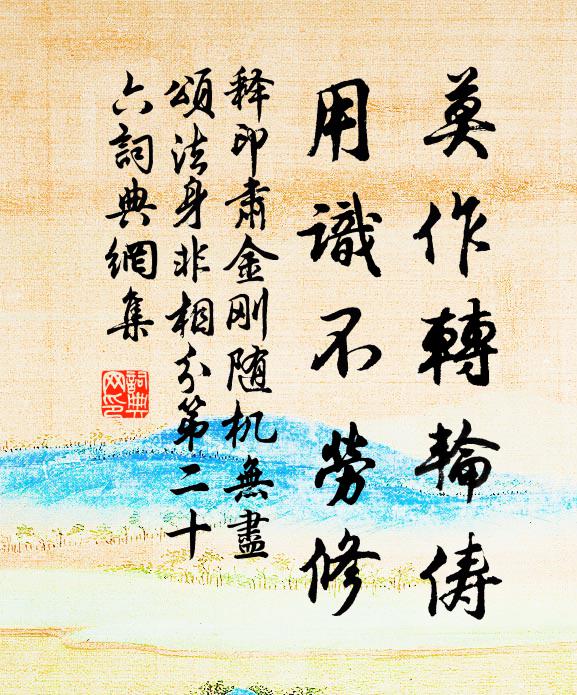 莫作轉輪儔
用識不勞修
释印肃金刚随机無盡
頌法身非相分第二十
六詞典網集
詞典
网印